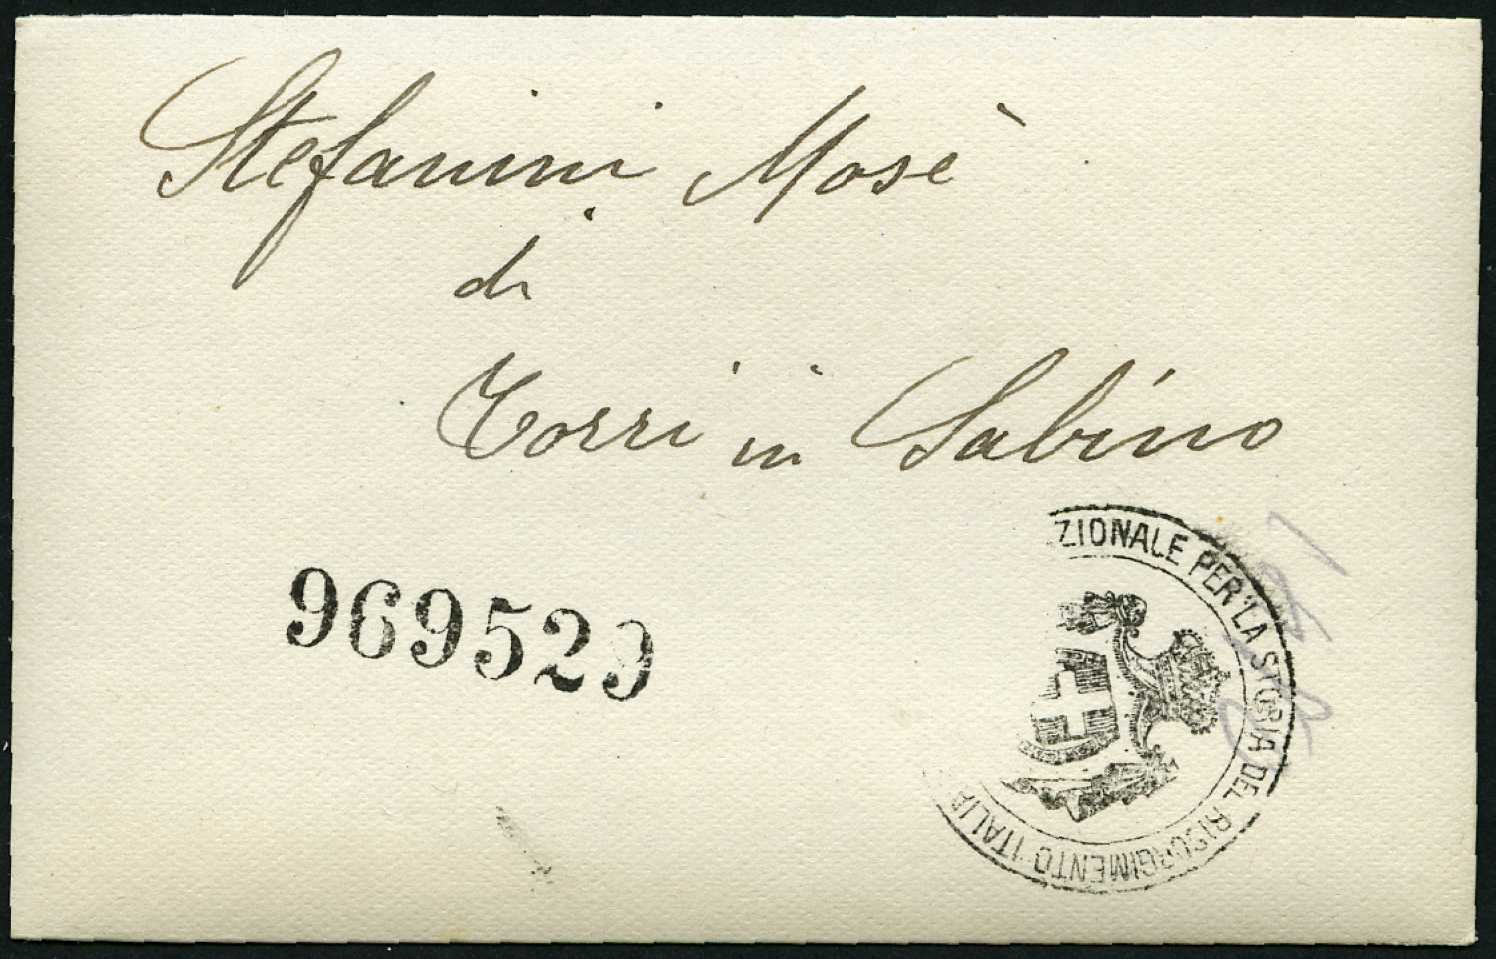 Stefanini Mosè
di
Torri in Sabino
969529
ZIONALE PER LA STORIA DEL RISORGIMENTO ITALIA